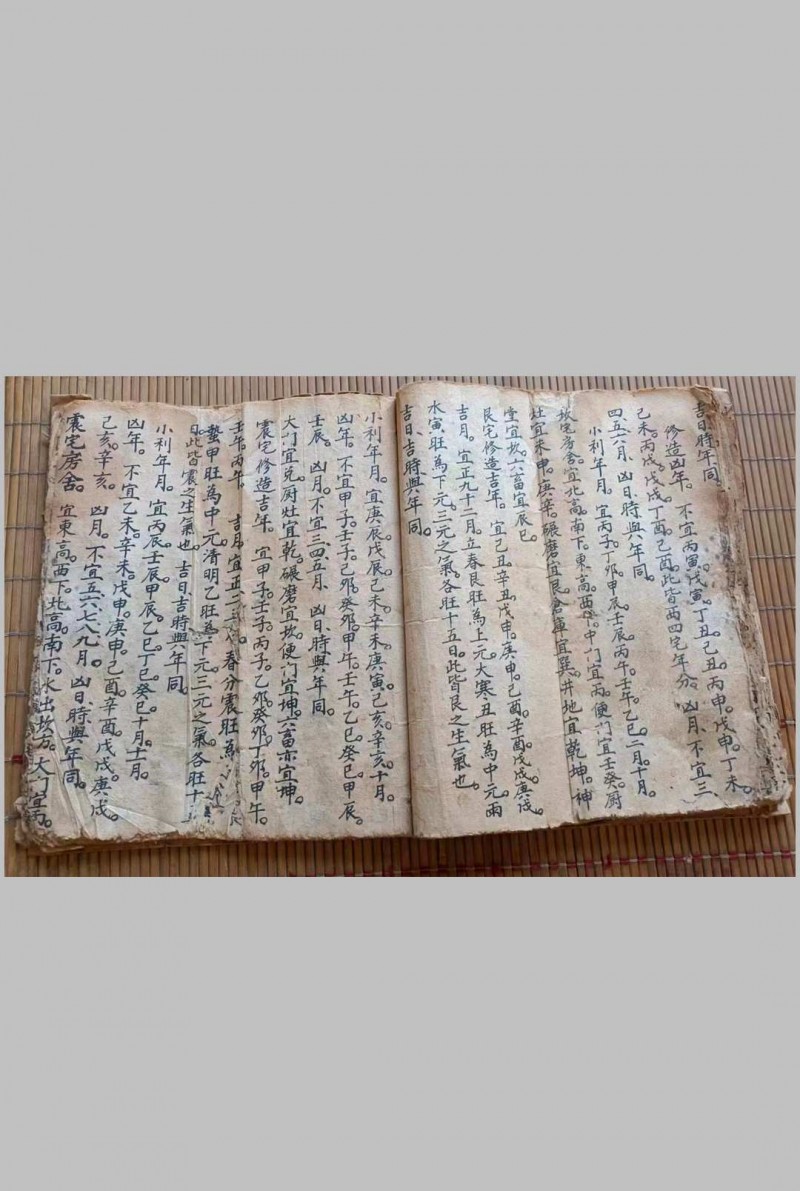 吉日時年同。
修造凶年。不宜丙寅。戊寅。丁丑。己丑。丙申。戊申。丁未。
己未。丙戌。戊戌。丁酉。己酉。此皆西四宅年分。凶月、不宜三、
四五六月、凶日、時與年同。
小利年月。宜丙子。丁卯。甲辰。壬辰。丙午。壬午。乙巳。二月。十月。
坎宅房舍。宜北高。南下。東高。西。中門宜丙。便門宜壬癸。厨
灶宜未申。庚辛。碾磨宜艮。倉庫宜巽。井地宜乾坤。神
堂宜坎。六畜宜辰巳。
艮宅修造吉年。宜己丑。辛丑。戊申。庚申。己酉。辛酉。戊戌。庚戌。
吉月。宜正九十二月。立春艮旺為上元。大寒丑旺為中元。雨
水寅旺為下元。三元之氣。各旺十五日。此皆艮之生氣也。
吉日吉時與年同。
小利年月。宜庚辰。戊辰。己未。辛未。庚寅。己亥。辛亥。十月。
凶年。不宜甲子。壬子。己卯。癸卯。甲午。壬午。乙巳。癸巳。甲辰。
壬辰。凶月。不宜三、四五月、凶日、時與年同。
大門宜兑。厨灶宜乾。碾磨宜坎。便門宜坤。六畜亦宜坤。
震宅修造吉年。宜甲子。壬子。丙子。乙卯。癸卯。丁卯。甲午。
壬午。丙午。吉月、宜正二三、春分震旺為
蟄甲旺為中元。清明乙旺為下元。三元之氣。各旺十
日。此皆震之生氣也。吉日、吉時與年同。
小利年月。宜丙辰。壬辰。甲辰。乙巳。丁巳。癸巳。十月。十二月。
凶年。不宜乙未。辛未。戊申。庚申。己酉。辛酉。戊戌。庚戌。
己亥。辛亥。凶月。不宜五六七八九月。凶日、時與年同。
震宅房舍。宜東高。西下。北高。南下。水出坎方。大門宜